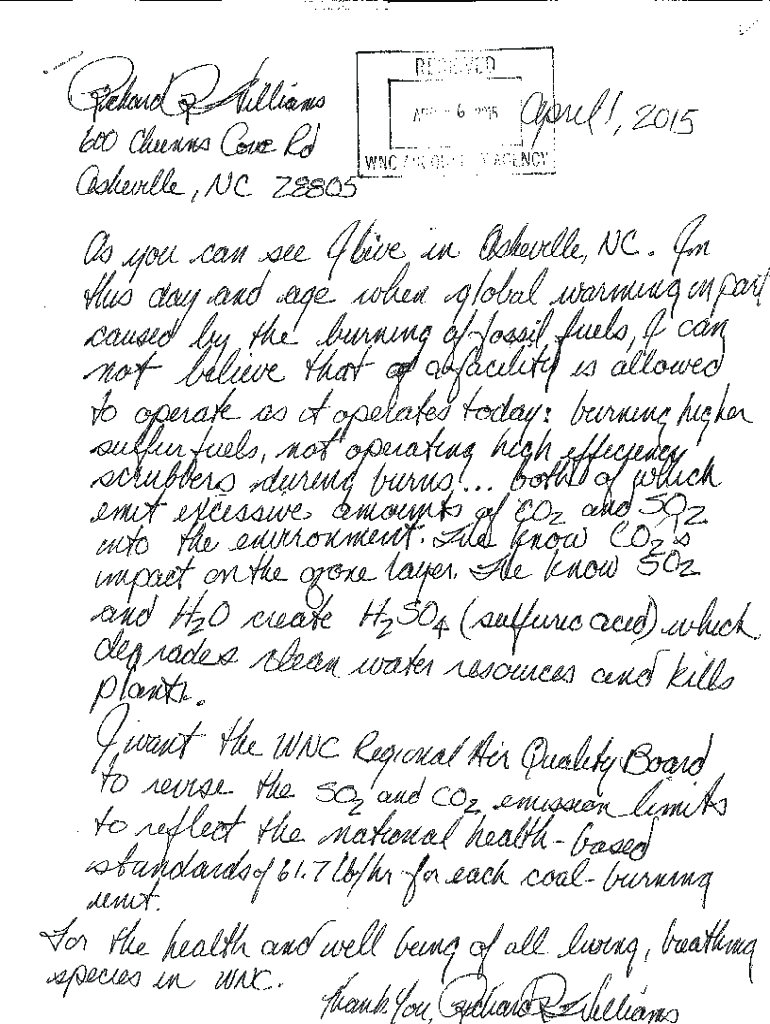 Richard R Williams
600 Chunns Cove Rd
Asheville, NC 28805
RECEIVED
6 2015
WNC AIR QUALITY AGENCY
April 1, 2015
As you can see I live in Asheville, NC. In
this day and age when global warming in part
caused by the burning of fossil fuels, I can
not believe that a facility is allowed
to operate as it operates today: burning higher
sulfur fuels, not operating high efficiency
scrubbers during burns... both of which
emit excessive amounts of CO2 and SO2
into the environment. We know CO2's
impact on the ozone layer. We know SO2
and H2O create H2SO4 (sulfuric acid) which
degrades clean water resources and kills
plants.
I want the WNC Regional Air Quality Board
to revise the SO2 and CO2 emission limits
to reflect the national health-based
standards of 61.7 lb/hr for each coal-burning
unit.
For the health and well being of all living, breathing
species in WNC.
Thank You, Richard R Williams